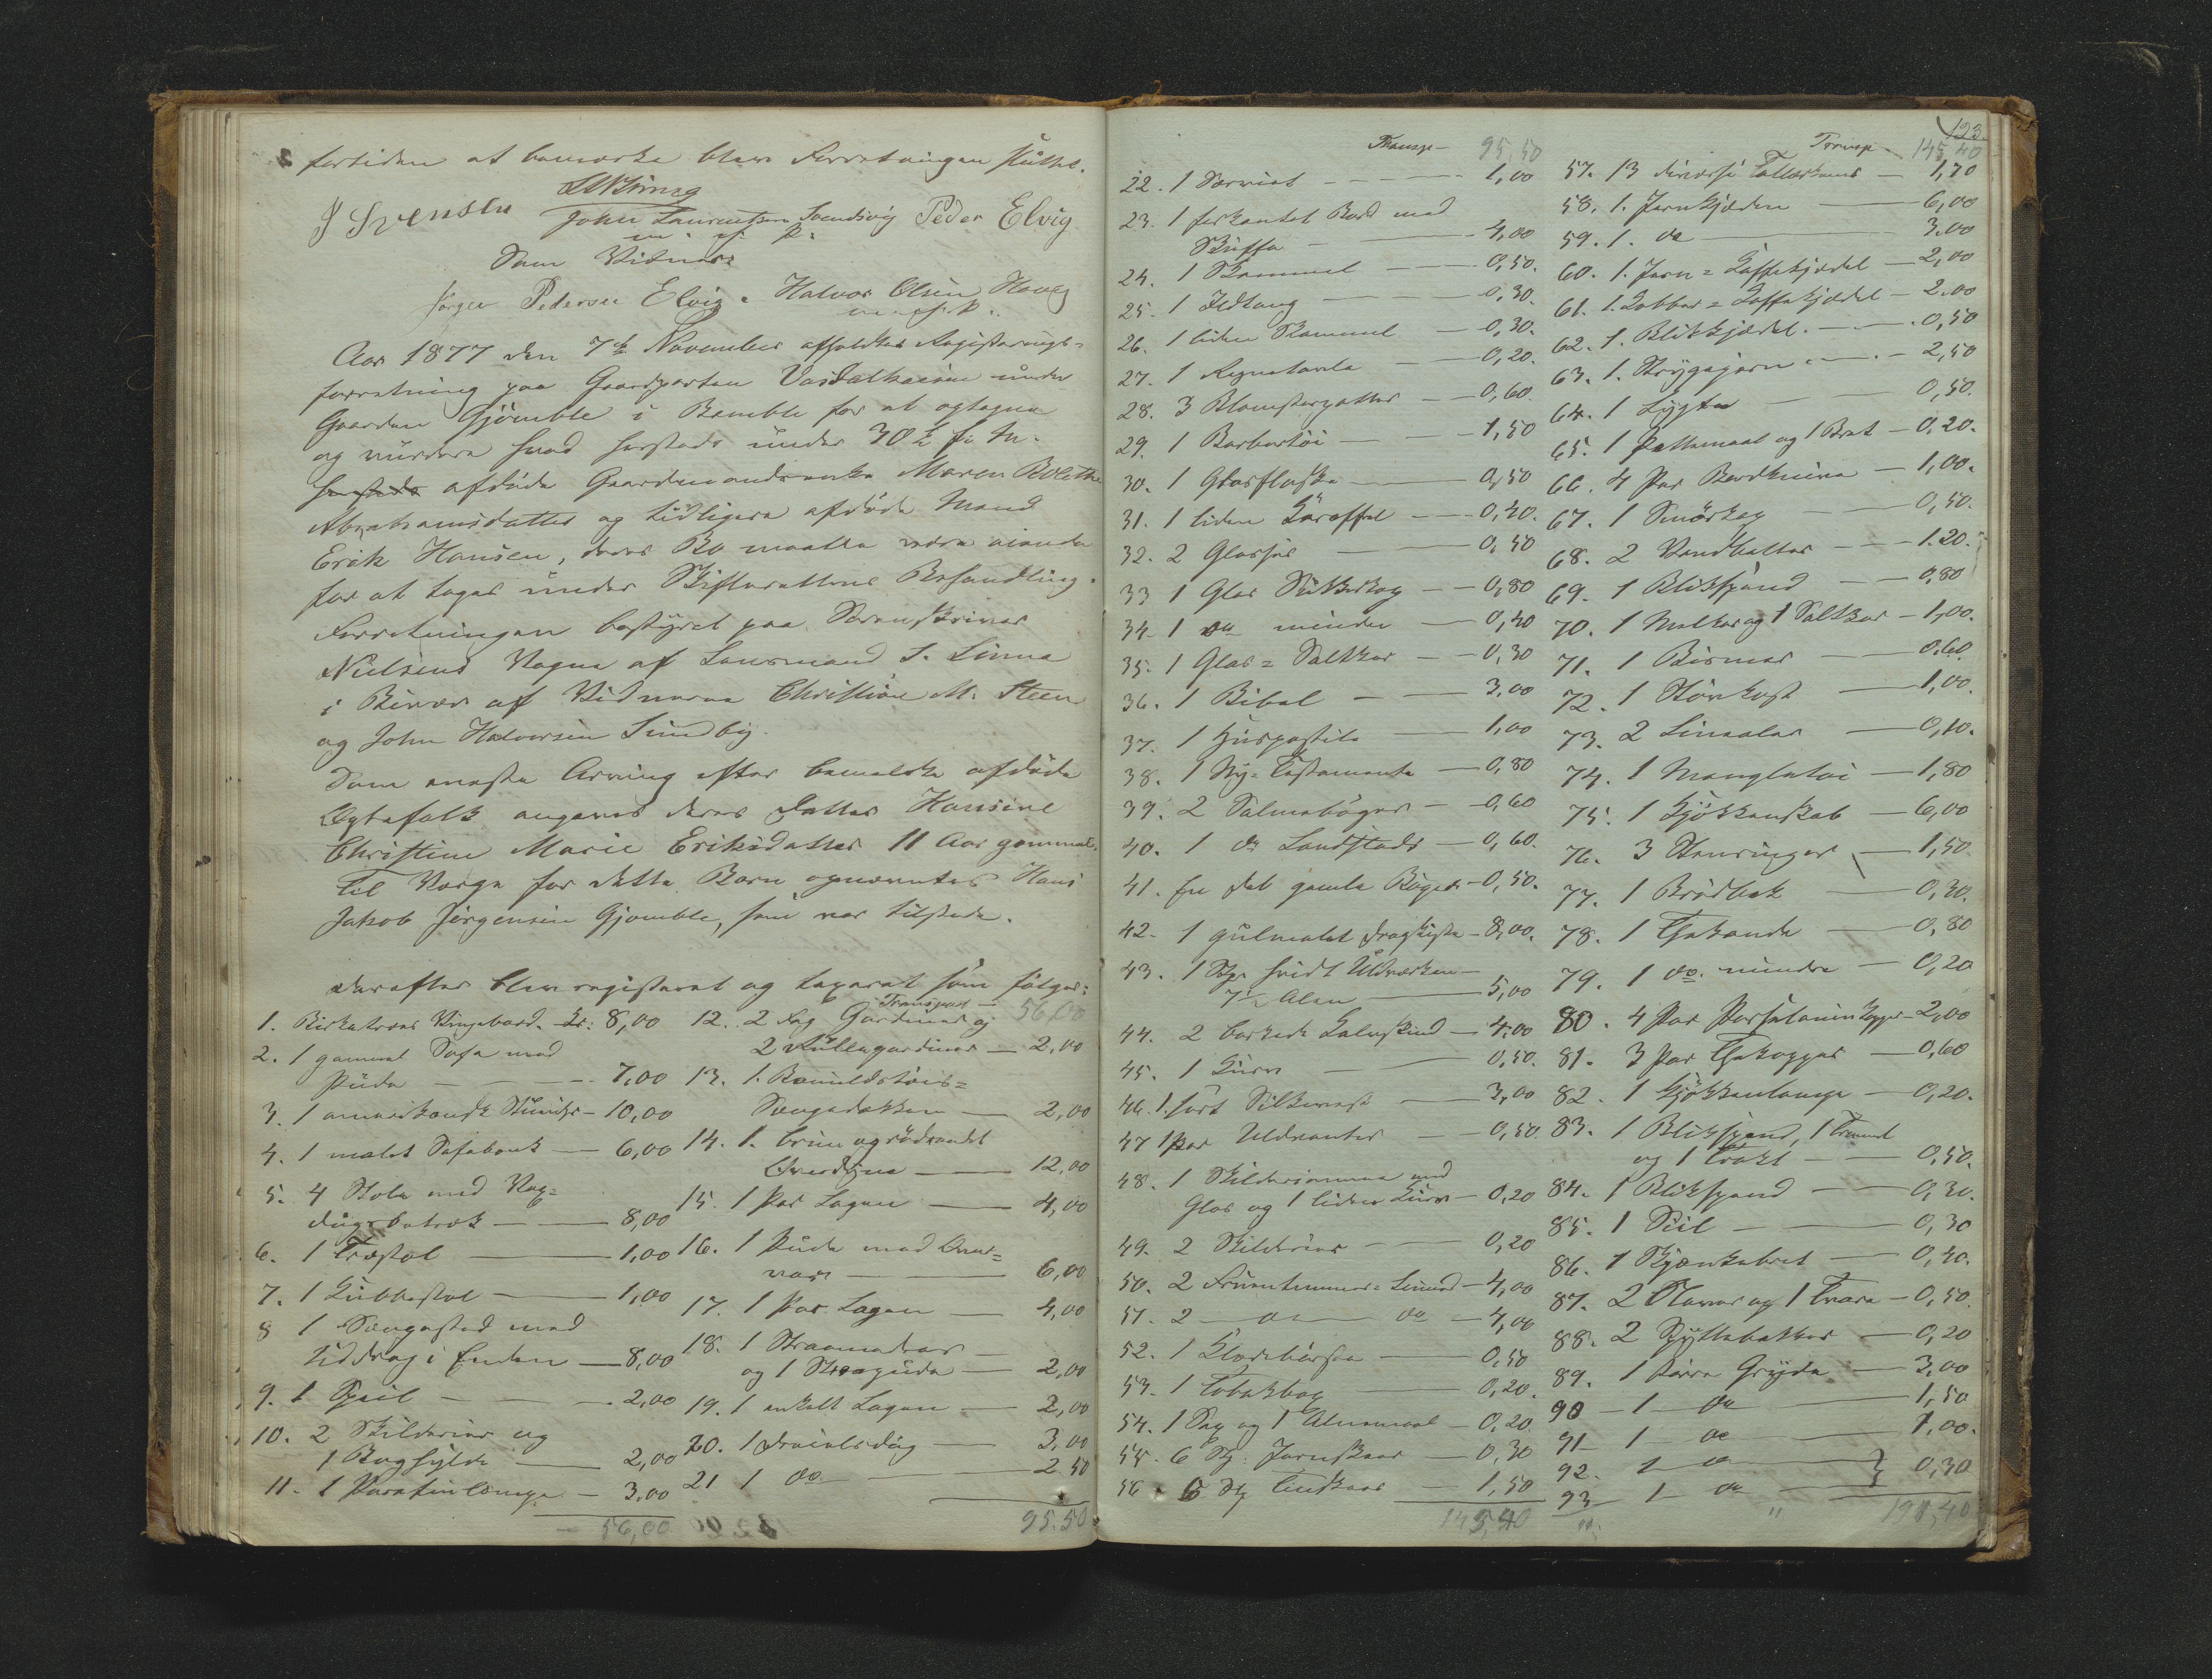 fortiden at bemærke blev Forretningen sluttet.
J Svensen John Laurentsen Svendsvig Peder Elvig
m. f. P.
Som Vidner:
Jörgen Pedersen Elvig. Halvor Olsen Houg
m. f. P.
Aar 1877 den 7de November afholdtes Registrerings-
forretning paa Gaardparten Vasdalheien under
Gaarden Gjömble i Bamble for at optegne
og vurdere hvad herstedes under 30te f. M.
herstede afdöde Gaardmandsenke Maren Bolethe
Abrahamsdatter og tidligere afdöde Mand
Erik Hansen, deres Bo maatte være eiende
for at tages under Skifterettens Behandling.
Forretningen bestyret paa Sorenskriver
Nielsens Vegne af Lensmand S. Linna
i Overvær af Vidnerne Christian M. Steen
og John Halvorsen Sundby.
Som eneste Arving efter bemeldte afdöde
Egtefolk angaves deres Datter Hansine
Christine Marie Eriksdatter 11 Aar gammel.
Til Verge for dette Barn opnævntes Hans
Jakob Jörgensen Gjömble, som var tilstede.
Derefter blev registreret og taxeret som fölger:
1. Birketræes Klapbord Kr: 8,00
2. 1 gammel Sofa med
Pude — 7,00
3. 1 amerikansk Stueuhr — 10,00
4. 1 malet Sofabænk — 6,00
5. 4 Stole med Vox=
dugsbetræk — 8,00
6. 1 Træstol — 1,00
7. 1 Kubbestol — 1,00
8 1 Sengested med
Uddrag i Enden — 8,00
9. 1 Speil — 2,00
10. 2 Skilderier og
1 Boghylde — 2,00
11. 1 Parafinlampe — 3,00
56,00
Transport — 56,00
12. 2 Fag Gardiner og
2 Rullegardiner — 2,00
13. 1 Bomuldstöis=
Sengedækken — 2,00
14. 1. brun og rödrandet
Overdyne — 12,00
15. 1 Par Lagen — 4,00
16. 1 Pude med Over=
vær — 6,00
17. 1 Par Lagen — 4,00
18. 1 Straamadras —
og 1 Straapude — 2,00
19. 1 enkelt Lagen — 2,00
20. 1 Dreielsdug — 3,00
21 1 do — 2 50
95.50
123.
Transp — 95,50
22. 1 Serviet — 1,00
23. 1 firkantet Bord med
Skuffe — 4,00
24. 1 Skammel — 0,50.
25. 1 Ildtang — 0,30.
26. 1 liden Skammel — 0,30.
27. 1 Regnetavle — 0,20.
28. 3 Blomsterpotter — 0,60.
29. 1 Barbertöi — 1,50
30. 1 Glasflaske — 0,50
31. 1 liden Karaffel — 0,40.
32. 2 Glasfar — 0,50
33 1 Glas Sukkerkop — 0,80
34. 1 do mindre — 0,40
35. 1 Glas= Saltkar — 0,30
36. 1 Bibel — 3,00
37. 1 Huspostile — 1,00
38. 1 Ny= Testamente — 0,80
39. 2 Salmebøger — 0,60
40. 1 do Landstads — 0,60.
41. En Del gamle Böger — 0,50.
42. 1 gulmalet Dragkiste — 8,00.
43. 1 Stk hvidt Uldverken —
7½ Alen — 5,00
44. 2 barkede Kalveskind — 4,00
45. 1 Kurv — 0,50.
46. 1 sort Silkevest — 3,00
47 1 Par Uldvanter — 0,50.
48. 1 Skilderiramme med
Glas og 1 liden Kurv — 0,20
49. 2 Skilderier — 0,20
50. 2 Fruentimmer= Linned — 4,00
51. 2 — do — do — 4,00
52. 1 Klædebörste — 0,50
53. 1 Tobakbox — 0,20.
54. 1 Sax og 1 Alnemaal — 0,20.
55. 6 St. Jernskeer — 0,30
56. 6 St Tinskeer — 1,50
145,40
Transp — 145,40
57. 13 diverse Tallerkener — 1,70
58. 1. Jernkjeden — 6,00
59. 1. do — 3.00
60. 1. Jern= Kaffekjedel — 2,00
61. 1. Kobber= Kaffekjedel — 2.00
62. 1. Blikkjedel — 0,50
63. 1. Strygejern — 2,50
64. 1 Lygte — 0,50.
65. 1 Pottemaal og 1 Bret — 0,20.
66. 4 Par Bordknive — 1,00.
67. 1 Smörkop — 0,50.
68. 2 Vandbötter — 1.20.
69. 1 Blikspand — 0,80
70. 1 Melkar og 1 Saltkar — 1,00.
71. 1 Bismer — 0.60
72. 1 Störkost — 1,00.
73. 2 Linealer — 0,10.
74. 1 Mangletöi — 1,80
75. 1 Kjökkenskab — 6,00
76. 3 Stenringer — 1,50
77. 1 Brödbak — 0,30.
78. 1 Thekande — 0,80
79. 1 do. mindre — 0,20
80. 4 Par Porselainskopper — 2,00
81. 3 Par Thekopper — 0,60
82. 1 Kjökkenlampe — 0,20.
83. 1 Blikspand,
og 1 Trakt — 0,50.
84. 1 Blikspand — 0,30.
85. 1 Sil — 0,30
86. 1 Skjænkebret — 0,40.
87. 2 Staver og 1 Tvare — 0,50.
88. 2 Spyttebakker — 0,20
89. 1 större Gryde — 3,00
90 — 1 — do — 1,50
91 — 1 — do — 1,00.
92. — 1 — do
93 — 1 — do } 0,30